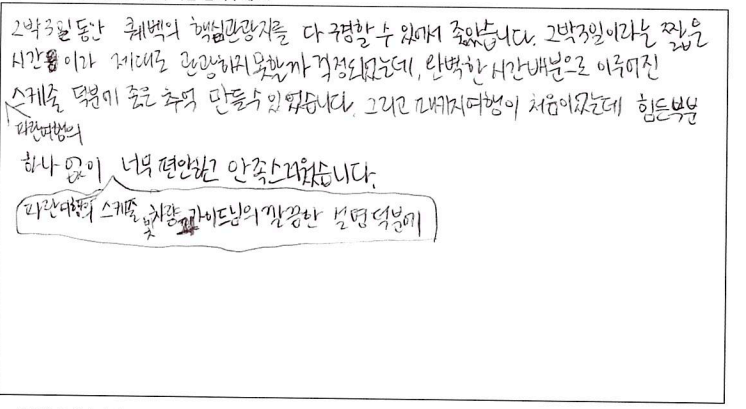 2박3일 동안 퀘벡의 핵심관광지를 다 구경할 수 있어서 좋았습니다. 2박3일이라는 짧은
시간이라 제대로 관광하지 못할까 걱정되었는데, 완벽한 시간배분으로 이루어진
스케줄 덕분에 좋은 추억 만들 수 있었습니다. 그리고 패키지여행이 처음이었는데 힘든부분
파란여행의
하나 없이 너무 편안하고 만족스러웠습니다.
파란여행의 스케줄 및 차량, 가이드님의 깔끔한 설명 덕분에